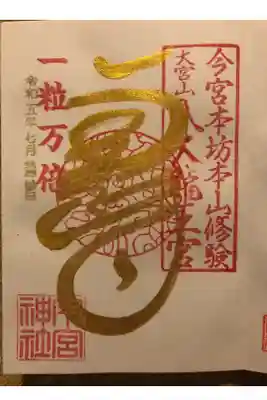 今宮本坊本山修験
大宮山八大龍王宮
一粒万倍
令和五年七月
今宮
神社